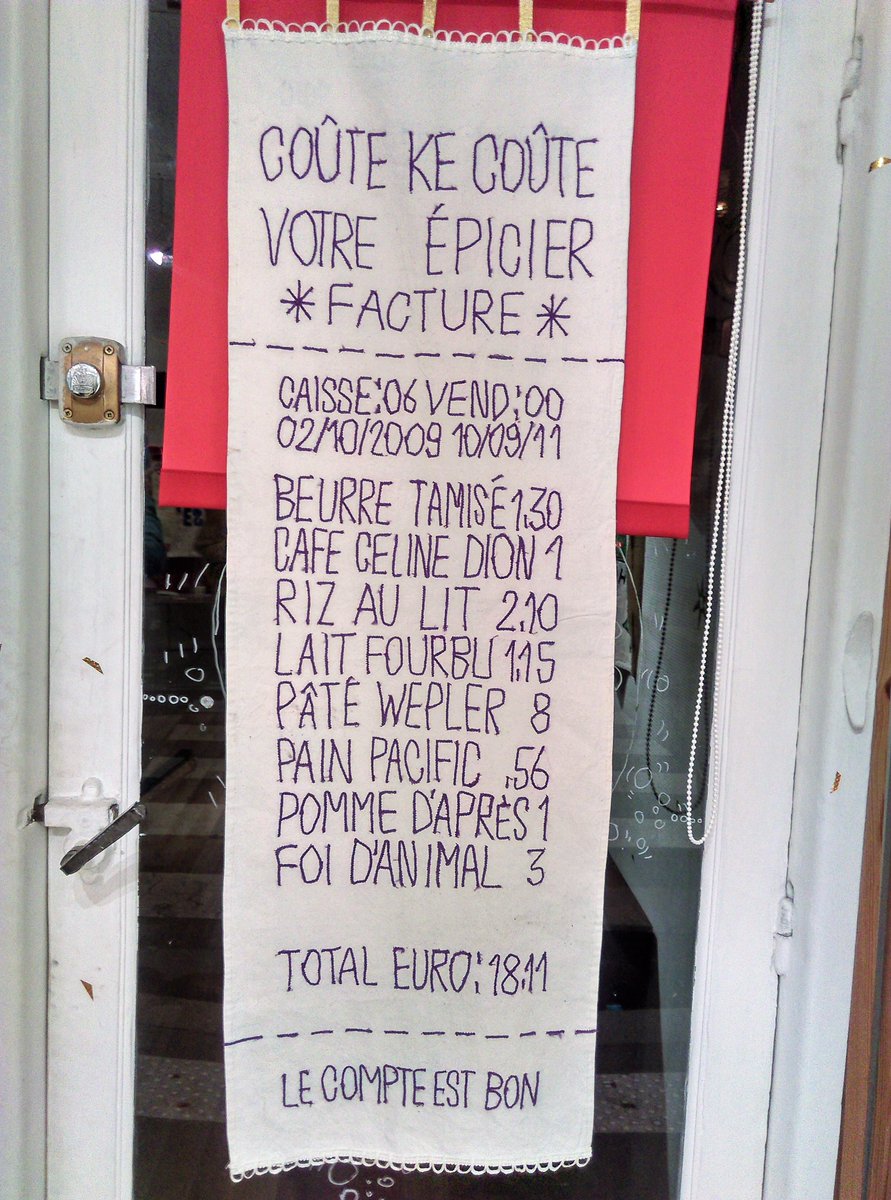 COÛTE KE COÛTE
VOTRE ÉPICIER
*FACTURE*
CAISSE:06 VEND:00
02/10/2009 10/09/11
BEURRE TAMISÉ 1,30
CAFE CELINE DION 1
RIZ AU LIT 2,10
LAIT FOURBU 1,15
PÂTÉ WEPLER 8
PAIN PACIFIC ,56
POMME D'APRÈS 1
FOI D'ANIMAL 3
TOTAL EURO: 18,11
LE COMPTE EST BON